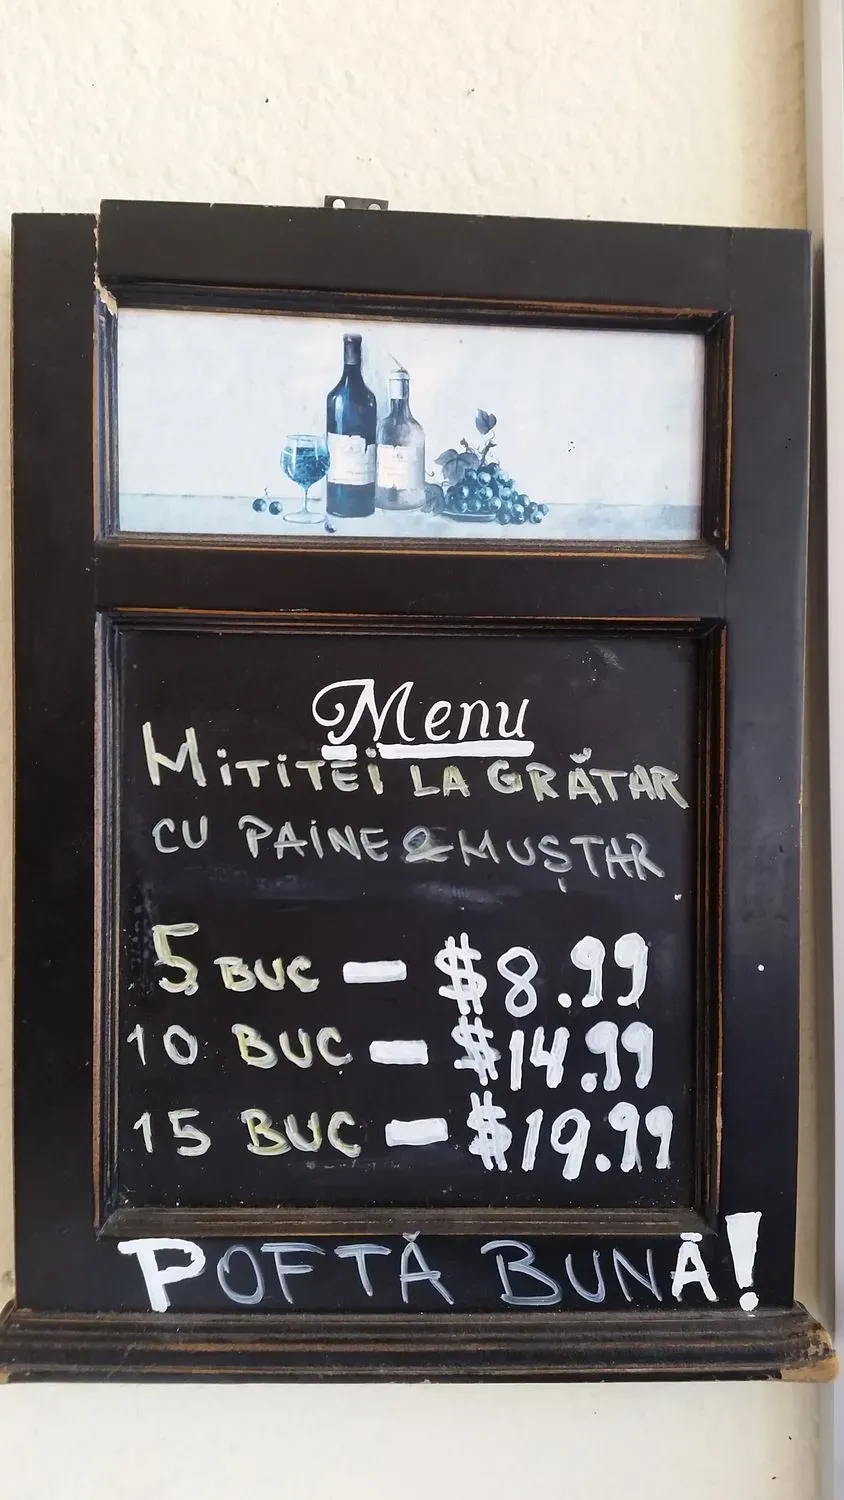 Menu
MiTiTEi LA GRĂTAR
CU PAiNE & MUȘTAR
5 BUC - $8.99
10 BUC - $14.99
15 BUC - $19.99
POFTĂ BUNĂ!